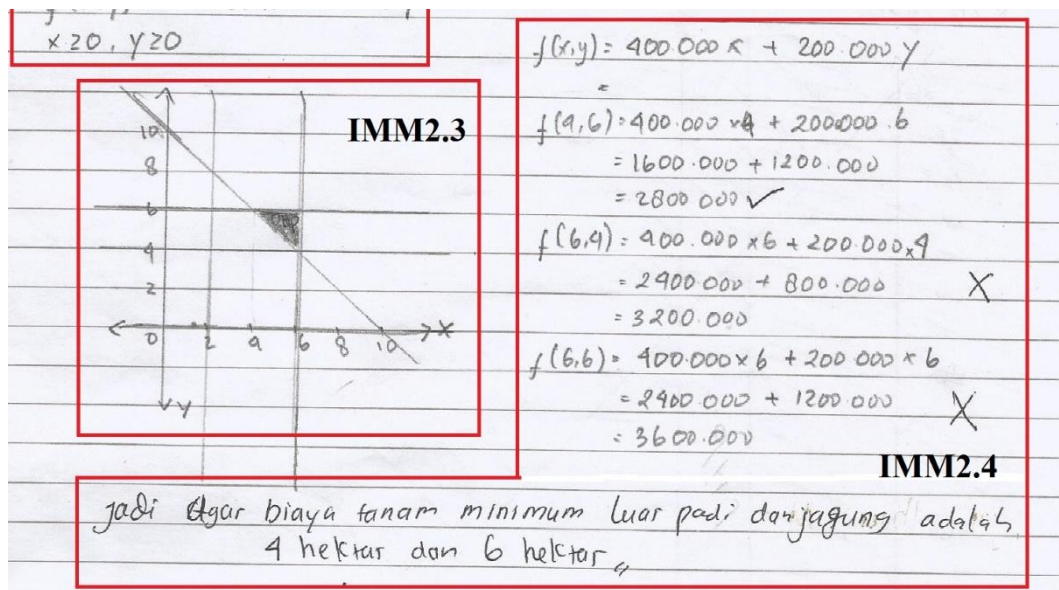 x ≥ 0, y ≥ 0
IMM2.3
10
8
6
4
2
0 2 4 6 8 10 X
Y
f(x,y) = 400.000 x + 200.000 y
=
f(4,6) = 400.000 x 4 + 200.000 . 6
= 1600.000 + 1200.000
= 2800 000 ✓
f(6,4) = 400.000 x 6 + 200.000 x 4
= 2400 000 + 800.000 X
= 3200.000
f(6,6) = 400.000 x 6 + 200 000 x 6
= 2400 000 + 1200 000 X
= 3600.000
IMM2.4
Jadi Agar biaya tanam minimum luar padi dan jagung adalah
4 hektar dan 6 hektar